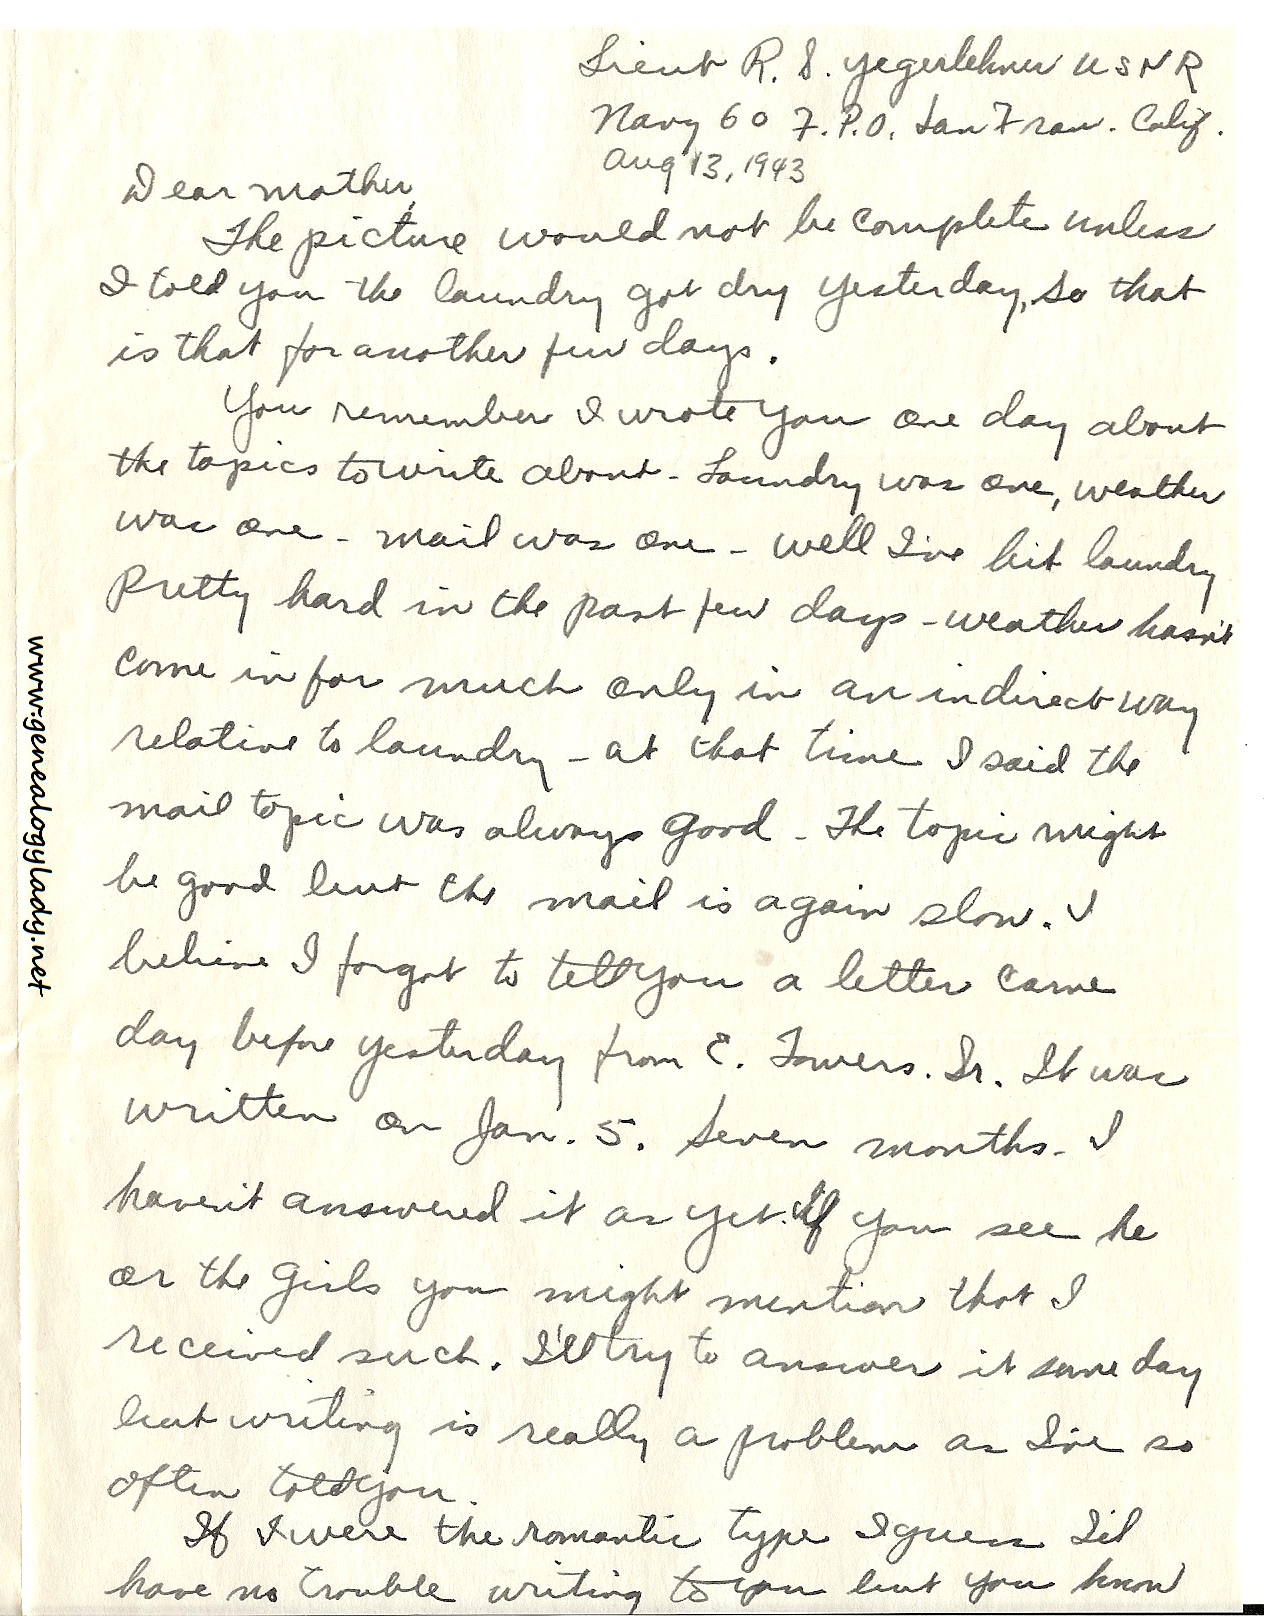 Lieut R. S. Yegerlehner USNR
Navy 60 F.P.O. San Fran. Calif.
Aug 13, 1943
Dear Mother,
The picture would not be complete unless
I told you the laundry got dry yesterday, so that
is that for another few days.
You remember I wrote you one day about
the topics to write about - Laundry was one, weather
was one - mail was one - well I've hit laundry
pretty hard in the past few days - weather hasn't
come in for much only in an indirect way
relative to laundry - at that time I said the
mail topic was always good - The topic might
be good but the mail is again slow. I
believe I forgot to tell you a letter came
day before yesterday from E. Towers. Sr. It was
written on Jan. 5. Seven months - I
haven't answered it as yet. If you see he
or the girls you might mention that I
received such. I'll try to answer it some day
but writing is really a problem as I've so
often told you.
If I were the romantic type I guess I'd
have no trouble writing to you but you know
www.genealogylady.net